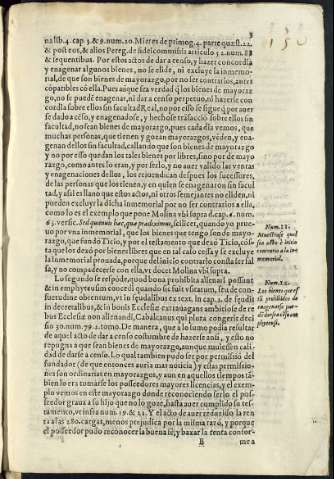 3
150
na lib. 4. cap. 3. & 9. num. 20. Mieres de primog. 4. parte quæst. 22.
& post eos, & alios Pereg. de fideicommissis articulo 52. num. 88
& sequentibus. Por estos actos de dar a censo, y hazer concordia
y enagenar algunos bienes, no se elide, ni excluye la inmemo-
rial, de que son bienes de mayorazgo, por no ser contrarios, antes
cõpatibles cõ ella. Pues aunque sea verdad q̃ los bienes de mayoraz
go, no se puedẽ enagenar, ni dar a censo perpetuo, ni hazerse con
cordia sobre ellos sin facultad R. cal, no por esso se sigue q̃ por auer
se dado a cẽso, y enagenadose, y hechose trãsacciõ sobre ellos sin
facultad, no sean bienes de mayorazgo, pues cada dia vemos, que
muchas personas, que tienen y gozan mayorazgos, vẽden, y ena-
genan dellos sin facultad, callando que son bienes de mayorazgo
y no por esso quedan los tales bienes por libres, sino por de mayo
razgo, como antes lo eran, y por serlo, y no auer valido las ventas
y enagenaciones dellos, los rejuendican despues los sucessores,
de las personas que los tienen, y en quien se enagenaron sin facul
tad, y assi el llano que estos actos, ni otros semejantes no eliden, ni
pueden excluyr la dicha inmemorial por no ser contrarios a ella,
como lo es el exemplo que pone Molina vbi supra d. cap. 6. num.
63. versic. Sed quamuis hæc, quæ prædiximus, scilicet, quando yo prue-
uo por vna inmemorial, que los bienes que tengo son de mayo-
razgo, que fundò Ticio, y por el testamento que dexò Ticio, cõs-
ta que los dexò por bienes libres que en tal caso cessa y se excluye
la inmemorial prouada, porque del instrumẽto contrario consta ser fal
sa, y no compadecerse con ella, vt docet Molina vbi supra.
Lo segundo se respõde, quod bona prohibita alienari possunt
& in emphyteusim concedi quando sic fuit vsitatum, seu de con-
suetudine obtentum, vt in feudalibus ex text. in cap. 2. de feudis
in decretalibus, & in bonis Ecclesiæ extrauagans ambitiosæ de re-
bus Ecclesiæ non alienandi, Caballicanus qui plura congerit deci
sio 30. num. 79. 2. tomo. De manera, que a lo sumo podia resultar
de aquel acto de dar a censo costumbre de hazerse ansi, y esso no
repugna a que sean bienes de mayorazgo, aunque tuuiessen cali-
dad de darse a censo. Lo qual tambien pudo ser por permission del
fundador (de que entonces auria mas noticia) y estas permissio-
nes son ordinarias en mayorazgos, y aun en aquellos tiempos tã-
bien lo era tomarse los posseedores mayores licencias, y exemplo
vemos en este mayorazgo donde reconociendo serlo el posse-
edor grauò a su hijo que no lo goze, hasta auer cumplido su tes-
tamento, vt infra num. 19. & 21. Y el acto de auer reduzido la ren
ta a las 280. cargas, menos perjudica por la misma razõ, y porque
el possessor pudo reconocer la buena fẽ, y baxar la renta confor-
B
me a
Num. 11.
Muestrase que
sin acto de licio
contrario a la in-
memorial.
Num. 12.
Los bienes que es
tã prohibidos de
enagenarse pue-
dẽ darse a cẽso em
phyteusi.